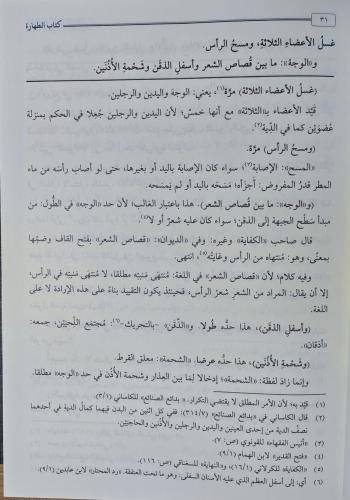 ٣١
كتاب الطهارة
غسلُ الأعضاءِ الثلاثةِ، ومسحُ الرأس.
و«الوجهُ»: ما بين قُصاص الشعر وأسفلِ الذقَن وشَحْمةِ الأُذُنَين.
(غَسلُ الأعضاءِ الثلاثة) مرّةً(١)، يعني: الوجهَ واليدين والرجلين.
قيّد الأعضاءَ بـ«الثلاثة» مع أنها خمسٌ؛ لأن اليدين والرجلين جُعلا في الحكم بمنزلة
عُضوَيْن كما في الدِّية(٢).
(ومسحُ الرأس) مرّة.
«المسح»: الإصابة(٣)؛ سواء كان الإصابة باليد أو بغيرها، حتى لو أصاب رأسَه من ماء
المطر قدرُ المفروض: أجزأه؛ مَسَحه باليد أو لم يَمسحه.
(و«الوجه»: ما بين قُصاص الشعر). هذا باعتبار الغالب؛ لأن حد «الوجه» في الطُّول: من
مبدأ سَطْح الجبهة إلى الذقن؛ سواء كان عليه شعرٌ أو لا(٤).
قال صاحب «الكفاية» وغيره: وفي «الديوان»: «قصاص الشعر» بفتح القاف وضمّها
بمعنًى، وهو: مُنتهاه من الرأس وغايتُه(٥)، انتهى.
وفيه كلام؛ لأن «قُصاص الشعر» في اللغة: مُنتهى مَنبِته مطلقا، لا مُنتهى مَنبِته في الرأس،
إلا أن يقال: المراد من الشعر شعرُ الرأس، فحينئذ يكون التقييد بناءً على هذه الإرادة لا على
اللغة.
(وأسفلِ الذقَن)، هذا حدّه طُولا. و«الذَّقَن» -بالتحريك-(٦): مُجتمَع اللَّحيَيْن، جمعه:
«أذقان».
(وشَحْمةِ الأُذُنَين)، هذا حدّه عرضا. «الشحمة»: معلق القرط.
وإنما زادَ لفظة: «الشحمة» إدخالا لِمَا بين العِذار وشحمة الأُذُن في حدّ «الوجه» مطلقا.
(١) قيّد به؛ لأن الأمر المطلق لا يقتضي التكرار. «بدائع الصنائع» للكاساني (٣/١)
(٢) قال الكاساني في «بدائع الصنائع» (٣١٤/٧): ففي كل اثنين من البدن فيهما كمال الدية في أحدهما
نصفُ الدية من إحدى العينين واليدين والرجلين والأُذُنين والحاجبَيْن.
(٣) «أنيس الفقهاء» للقونوي (ص: ٧).
(٤) «فتح القدير» لابن الهمام (٩/١)
(٥) «الكفاية» للكرلاني (١٦/١)، و«النهاية» للسغناقي (ص: ١١٦).
(٦) أي: إلى أسفل العظم الذي عليه الأسنان السفلى، وهو ما تحت العنفقة. «رد المحتار» لابن عابدين (٩٦/١)